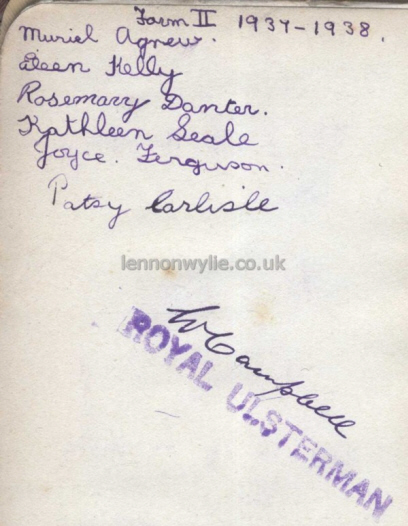 Form II 1937-1938.
Muriel Agnew.
Eileen Kelly
Rosemary Danter.
Kathleen Seale
Joyce. Ferguson.
Patsy Carlisle
lennonwylie.co.uk
W Campbell
ROYAL ULSTERMAN